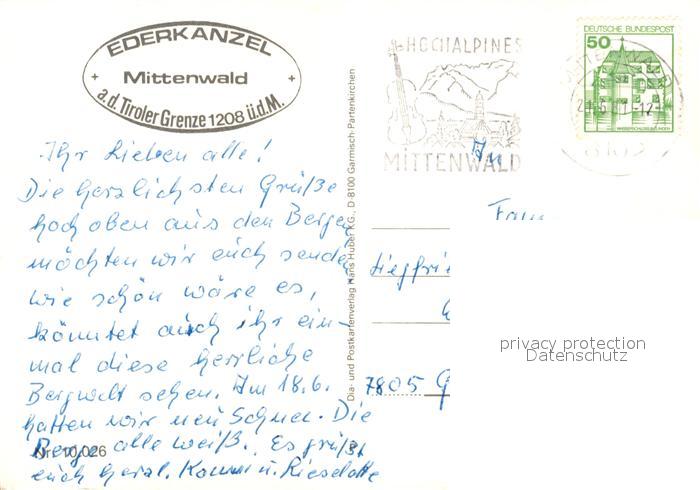 EDERKANZEL
+ Mittenwald +
a.d. Tiroler Grenze 1208 ü.d.M.
Ihr Lieben alle!
Die herzlichsten Grüße
hoch oben aus den Bergen
möchten wir euch senden
wie schön wäre es,
könntet auch ihr ein-
mal diese herrliche
Bergwelt sehen. Am 18.6.
hatten wir neu Schnee. Die
Berge alle weiß. Es grüßt
Nr. 10,026
euch herzl. u. Lieselotte
Dia- und Postkartenverlag Hans Huber KG., D-8100 Garmisch-Partenkirchen
HOCHALPINES
MITTENWALD
DEUTSCHE BUNDESPOST
50
WASSERSCHLOSS INZLINGEN
MITTENWALD
8102
An
Fam
Siegfri
7805 G
privacy protection
Datenschutz